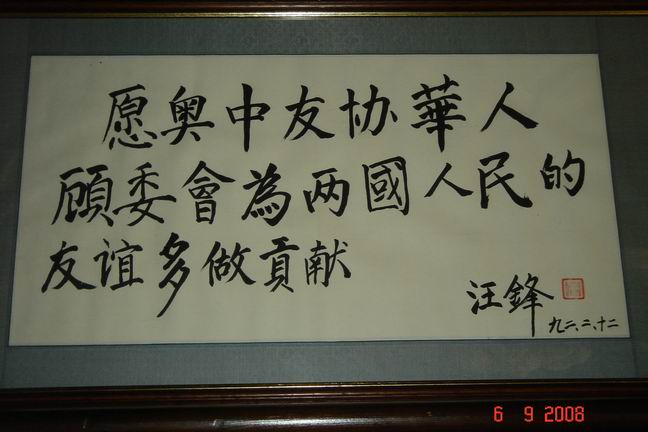 愿奥中友协華人
顧委會為两國人民的
友谊多做貢献
汪鋒
九二、二、十二
6 9 2008